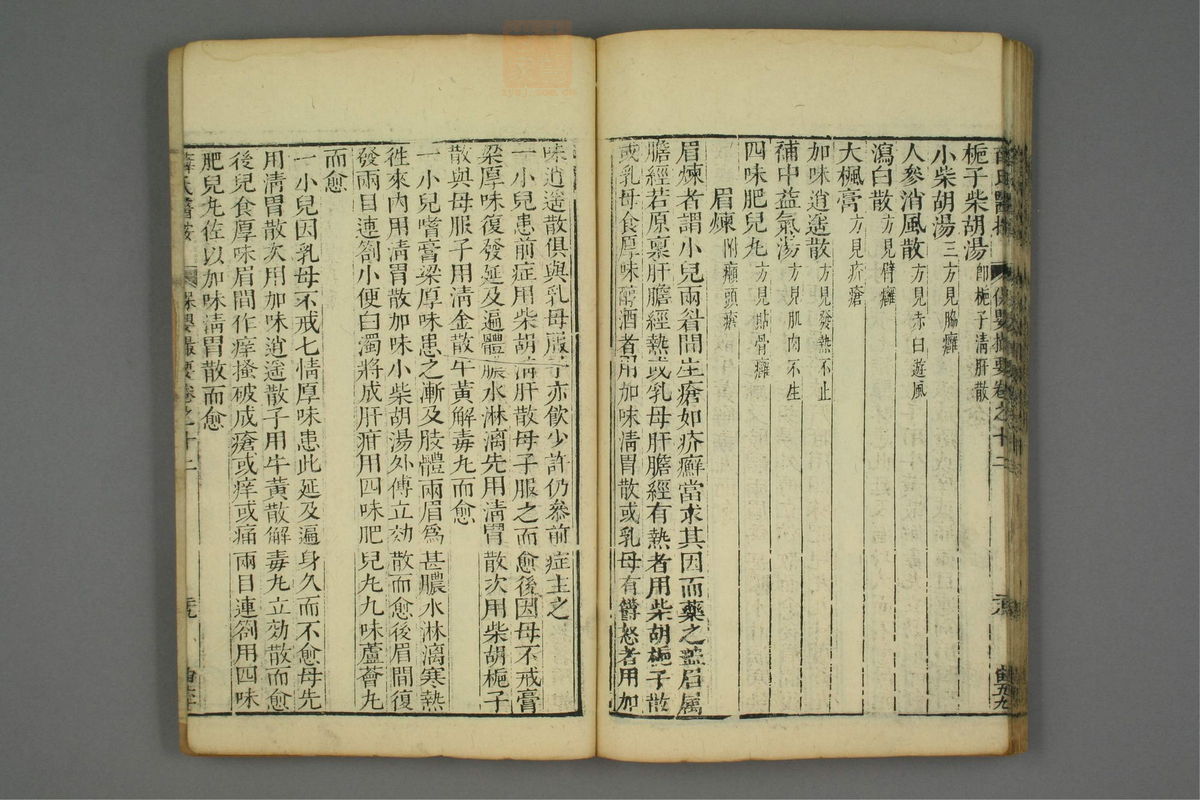 薛氏醫按 保嬰撮要卷之十二
梔子柴胡湯 卽梔子淸肝散
小柴胡湯 三方見臁癰
人參消風散 方見赤白遊風
瀉白散 方見臂癰
大楓膏 方見疥瘡
加味逍遙散 方見發熱不止
補中益氣湯 方見肌肉不生
四味肥兒丸 方見貼骨癰
眉煉 附癩頭瘡
眉煉者謂小兒兩眉間生瘡如疥癬當求其因而藥之蓋眉屬
膽經若原稟肝膽經熱或乳母肝膽經有熱者用柴胡梔子散
或乳母食厚味醇酒者用加味淸胃散或乳母有鬱怒者用加
味逍遙散俱與乳母服子亦飮少許仍參前症主之
一小兒患前症用柴胡淸肝散母子服之而愈後因母不戒膏
梁厚味復發延及遍體膿水淋漓先用淸胃散次用柴胡梔子
散與母服子用淸金散牛黃解毒丸而愈
一小兒嗜膏梁厚味患之漸及肢體兩眉爲甚膿水淋漓寒熱
徃來內用淸胃散加味小柴胡湯外傅立効散而愈後眉間復
發兩目連劄小便白濁將成肝疳用四味肥兒丸九味蘆薈丸
而愈
一小兒因乳母不戒七情厚味患此延及遍身久而不愈母先
用淸胃散次用加味逍遙散子用牛黃散解毒丸立効散而愈
後兒食厚味眉間作癢搔破成瘡或痒或痛兩目連劄用四味
肥兒丸佐以加味淸胃散而愈
薛氏醫按 保嬰撮要卷之十二